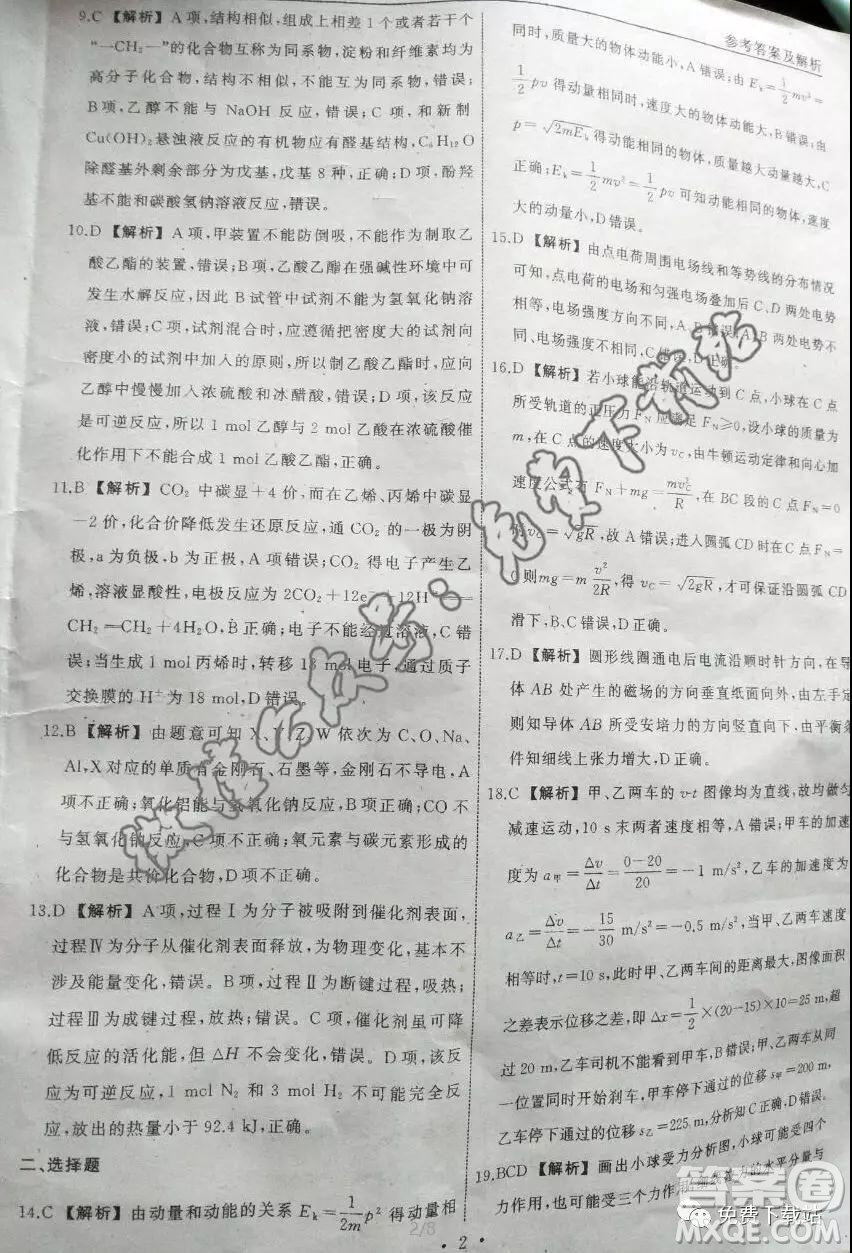 参考答案及解析
9.C 【解析】A项,结构相似,组成上相差1个或者若干个
“—CH₂—”的化合物互称为同系物,淀粉和纤维素均为
高分子化合物,结构不相似,不能互为同系物,错误;
B项,乙醇不能与NaOH反应,错误;C项,和新制
Cu(OH)₂悬浊液反应的有机物应有醛基结构,C₆H₁₂O
除醛基外剩余部分为戊基,戊基8种,正确;D项,酚羟
基不能和碳酸氢钠溶液反应,错误。
10.D 【解析】A项,甲装置不能防倒吸,不能作为制取乙
酸乙酯的装置,错误;B项,乙酸乙酯在强碱性环境中可
发生水解反应,因此B试管中试剂不能为氢氧化钠溶
液,错误;C项,试剂混合时,应遵循把密度大的试剂向
密度小的试剂中加入的原则,所以制乙酸乙酯时,应向
乙醇中慢慢加入浓硫酸和冰醋酸,错误;D项,该反应
是可逆反应,所以1 mol乙醇与2 mol乙酸在浓硫酸催
化作用下不能合成1 mol乙酸乙酯,正确。
11.B 【解析】CO₂中碳显+4价,而在乙烯、丙烯中碳显
-2价,化合价降低发生还原反应,通CO₂的一极为阴
极,a为负极,b为正极,A项错误;CO₂得电子产生乙
烯,溶液显酸性,电极反应为2CO₂+12e⁻+12H⁺══
CH₂═CH₂+4H₂O,B正确;电子不能经过溶液,C错
误;当生成1 mol丙烯时,转移18 mol电子,通过质子
交换膜的H⁺为18 mol,D错误。
12.B 【解析】由题意可知X、Y、Z、W依次为C、O、Na、
Al,X对应的单质有金刚石、石墨等,金刚石不导电,A
项不正确;氧化铝能与氢氧化钠反应,B正确;CO不
与氢氧化钠反应,C项不正确;氧元素与碳元素形成的
化合物是共价化合物,D项不正确。
13.D 【解析】A项,过程Ⅰ为分子被吸附到催化剂表面,
过程Ⅳ为分子从催化剂表面释放,为物理变化,基本不
涉及能量变化,错误。B项,过程Ⅱ为断键过程,吸热;
过程Ⅲ为成键过程,放热;错误。C项,催化剂虽可降
低反应的活化能,但ΔH不会变化,错误。D项,该反
应为可逆反应,1 mol N₂和3 mol H₂不可能完全反
应,放出的热量小于92.4 kJ,正确。
二、选择题
14.C 【解析】由动量和动能的关系Eₖ=1/(2m)p²得动量相
同时,质量大的物体动能小,A错误;由Eₖ=1/2mv²=
1/2pv得动量相同时,速度大的物体动能大,B错误;由
p=√(2mEₖ)得动能相同的物体,质量越大动量越大,C
正确;Eₖ=1/2mv²=1/2pv可知动能相同的物体,速度
大的动量小,D错误。
15.D 【解析】由点电荷周围电场线和等势线的分布情况
可知,点电荷的电场和匀强电场叠加后C、D两处电势
相等,电场强度方向不同,A、B错误;A、B两处电势不
同、电场强度不相同,C错误、D正确。
16.D 【解析】若小球能沿轨道运动到C点,小球在C点
所受轨道的正压力F_N应满足F_N≥0,设小球的质量为
m,在C点的速度大小为v_C,由牛顿运动定律和向心加
速度公式有F_N+mg=mv_C²/R,在BC段的C点F_N=0
则v_C=√(gR),故A错误;进入圆弧CD时在C点F_N=
0则mg=m v²/(2R),得v_C=√(2gR),才可保证沿圆弧CD
滑下,B、C错误,D正确。
17.D 【解析】圆形线圈通电后电流沿顺时针方向,在导
体AB处产生的磁场方向垂直纸面向外,由左手定
则知导体AB所受安培力的方向竖直向下,由平衡条
件知细线上张力增大,D正确。
18.C 【解析】甲、乙两车的v-t图像均为直线,故均做匀
减速运动,10 s末两者速度相等,A错误;甲车的加速
度为a甲=Δv/Δt=(0-20)/20=-1 m/s²,乙车的加速度为
a乙=Δv/Δt=-15/30 m/s²=-0.5 m/s²,当甲、乙两车速度
相等时,t=10 s,此时甲、乙两车间的距离最大,图像面积
之差表示位移之差,即Δx=1/2×(20-15)×10=25 m,超
过20 m,乙车司机不能看到甲车,B错误;甲、乙两车从同
一位置同时开始刹车,甲车停下通过的位移s甲=200 m,
乙车停下通过的位移s乙=225 m,分析知C正确,D错误。
19.BCD 【解析】画出小球受力分析图,小球可能受四个
力作用,也可能受三个力作用,的水平分量与
2/8
· 2 ·
微信公众号:免费下载站
答案圈
MXQE.COM
免费下载站